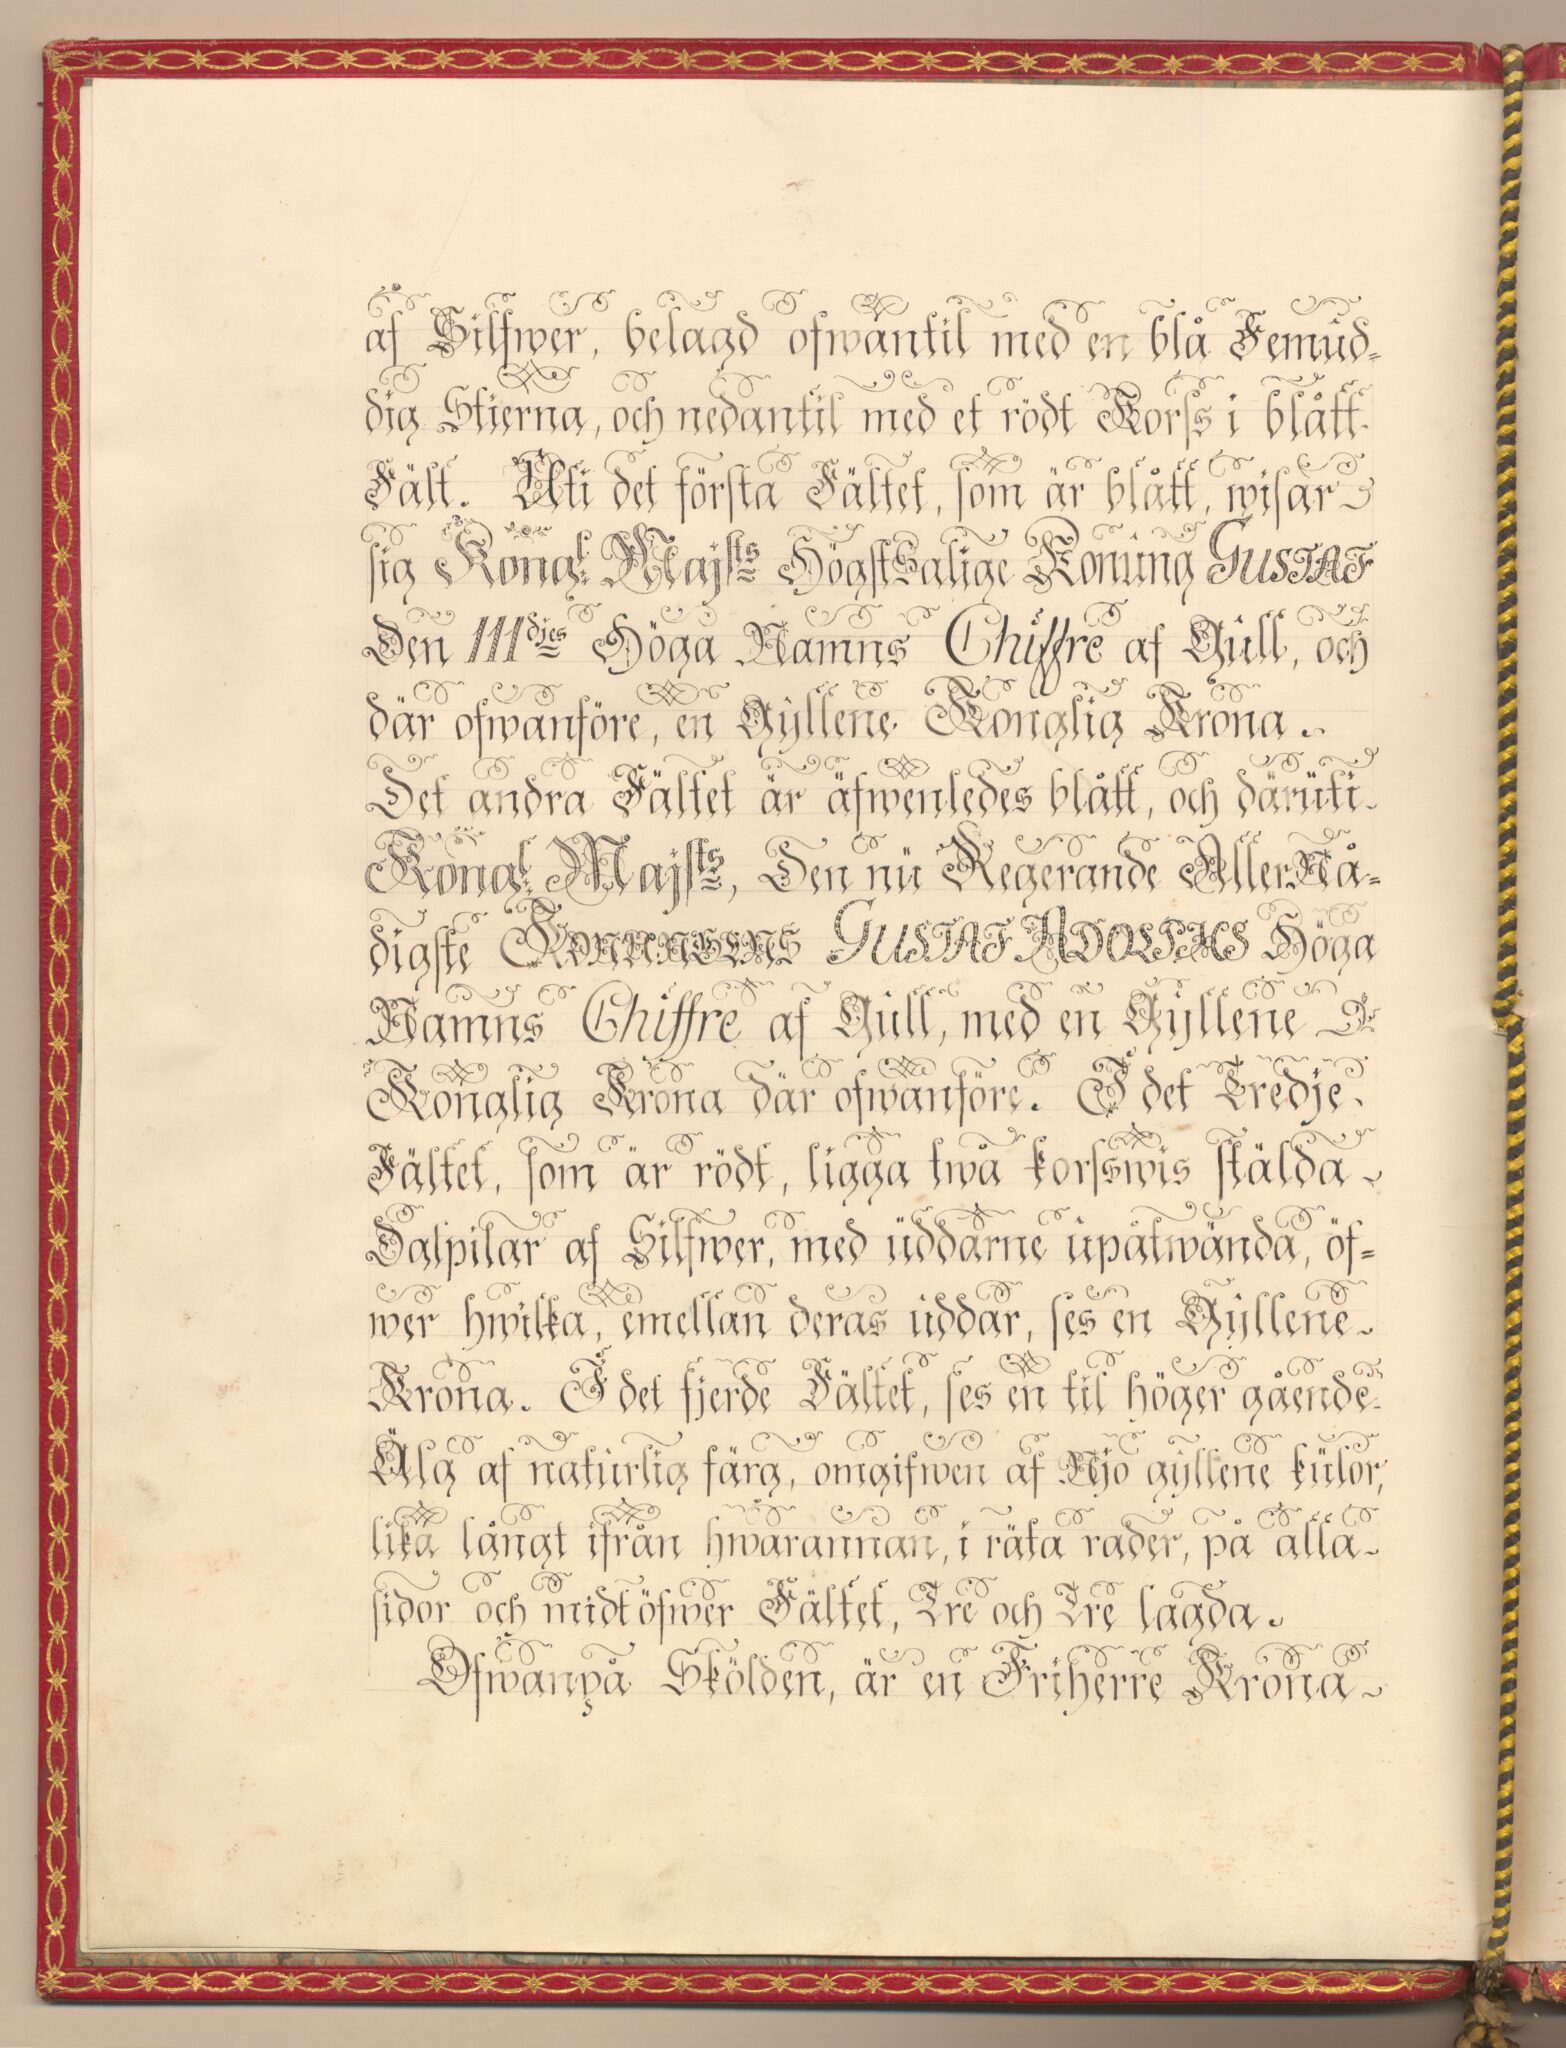 af Silfwer, belagd ofwantil med en blå Femud-
dig Stierna, och nedantil med et rödt Korss i blått
Fält. Uti det första Fältet, som är blått, wisar
sig Kongl: Majsts HögstSalige Konung GUSTAF
Den IIIdjes Höga Namns Chiffre af Gull, och
där ofwanföre, en Gyllene Konglig Krona.
Det andra Fältet är äfwenledes blått, och däruti
Kongl: Majsts, Den nu Regerande AllerNå-
digste KONUNGENS GUSTAF ADOLPHS Höga
Namns Chiffre af Gull, med en Gyllene
Konglig Krona där ofwanföre. I det Tredje
Fältet, som är rödt, ligga twå korsswis stälda
Dalpilar af Silfwer, med uddarne upåtwända, öf-
wer hwilka, emellan deras uddar, ses en Gyllene
Krona. I det fjerde Fältet, ses en til höger gående
Älg af naturlig färg, omgifwen af Njo gyllene kulor,
lika långt ifrån hwarannan, i räta rader, på alla
sidor och midt öfwer Fältet, Tre och Tre lagda.
Ofwanpå Skölden, är en Friherre Krona